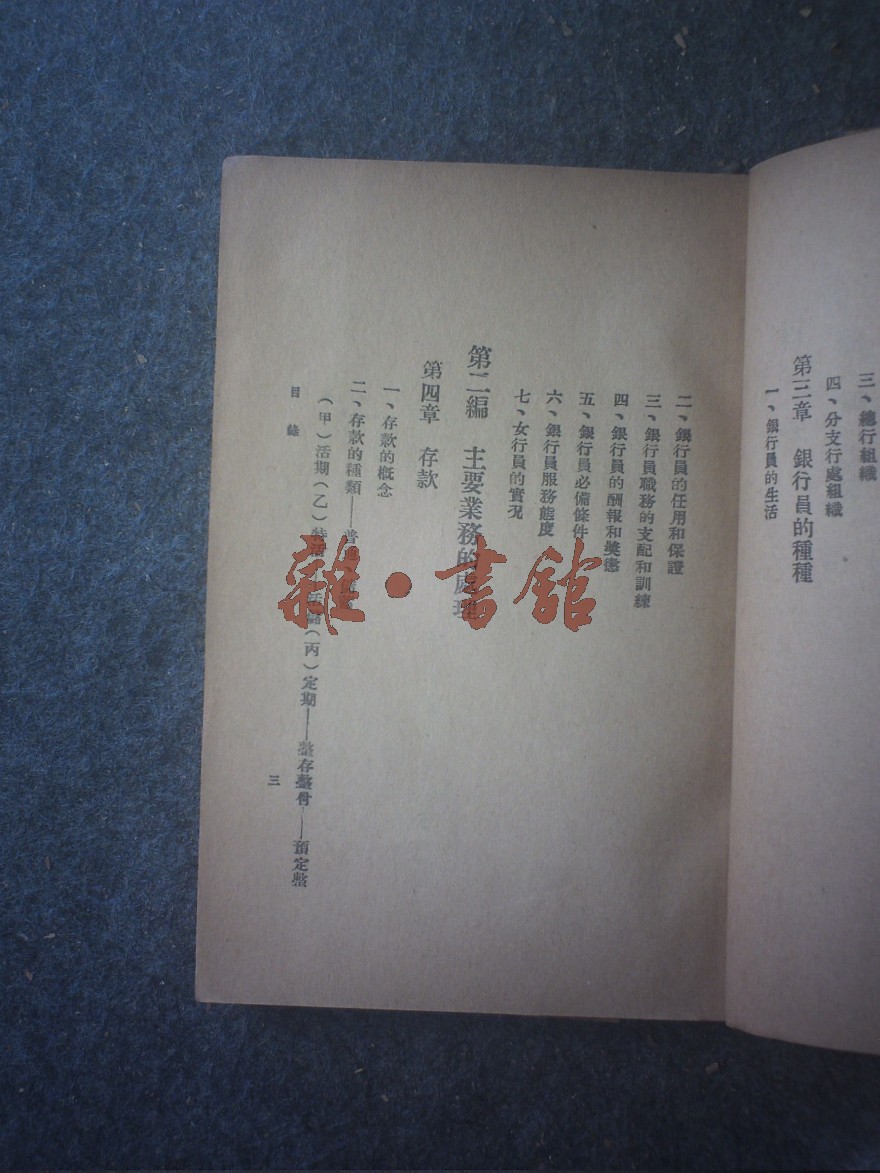 三、總行組織
四、分支行處組織
第三章　銀行員的種種
一、銀行員的生活
二、銀行員的任用和保證
三、銀行員職務的支配和訓練
四、銀行員的酬報和獎懲
五、銀行員必備條件
六、銀行員服務態度
七、女行員的實況
第二編　主要業務的處理
第四章　存款
一、存款的概念
二、存款的種類——普
（甲）活期（乙）特活——活儲（丙）定期——整存整付——預定整
目錄
三
雜·書館